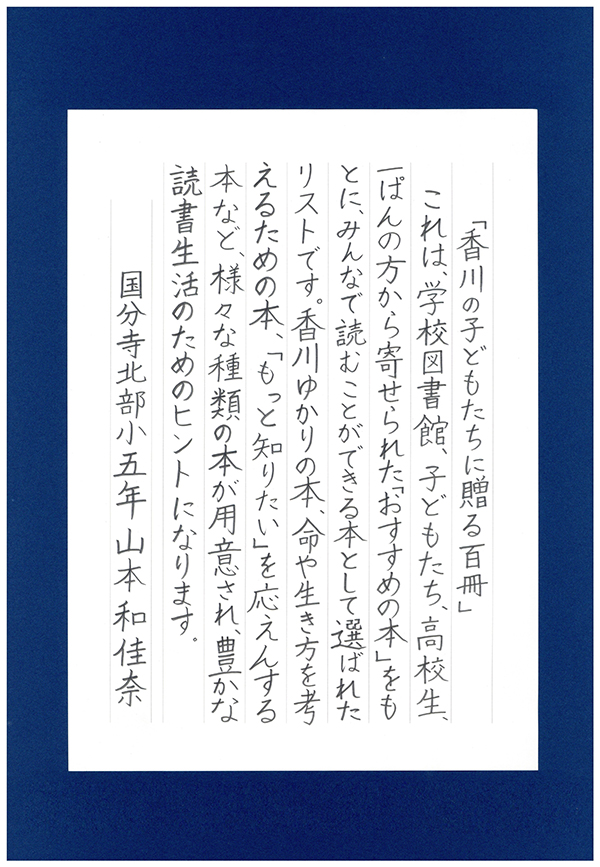 「香川の子どもたちに贈る百冊」
これは、学校図書館、子どもたち、高校生、
一ぱんの方から寄せられた「おすすめの本」をも
とに、みんなで読むことができる本として選ばれた
リストです。香川ゆかりの本、命や生き方を考
えるための本、「もっと知りたい」を応えんする
本など、様々な種類の本が用意され、豊かな
読書生活のためのヒントになります。
国分寺北部小五年 山本和佳奈